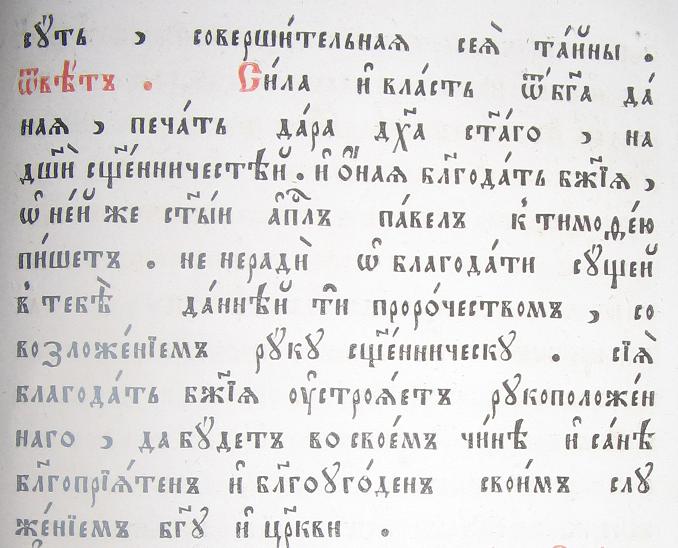 сꙋ́ть , соверши́тельная сея̀ та́йны .
ѿвѣ́тъ . Си́ла и҆ вла́сть ѿ бг҃а да́
ная , печа́ть да́ра дх҃а ст҃а́го , на
дш҃ѝ сщ҃е́нничестѣй . и҆ ѻ҆́ная бл҃года́ть бж҃їя ,
ѡ҆ не́й же ст҃ы́и а҆пⷭ҇лъ па́велъ к̾ тимоѳе́ю
пи́шетъ . не неради̏ ѡ҆ благода́ти сꙋ́щей
в̾ тебѣ̀ да́ннѣй ти̏ проро́чествомъ , со
возложе́нїемъ рꙋкꙋ сщ҃е́нническꙋ . сїѧ̀
благода́ть бж҃їя ᲂу҆строѧ́етъ рꙋкоположе́н
наго , да бꙋ́детъ во свое́мъ чи́нѣ и҆ са́нѣ
бл҃гопрїѧ́тенъ и҆ бл҃гоꙋго́денъ свои́мъ слꙋ
же́нїемъ бг҃ꙋ и҆ цр҃кви .